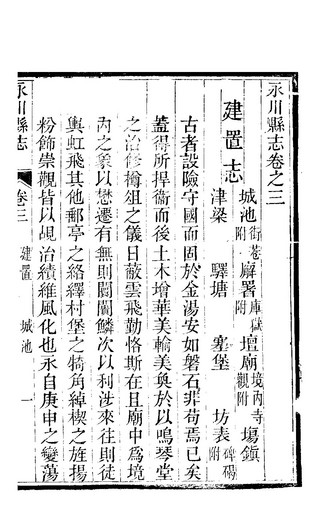 永川縣志卷之三
建置志
城池街巷附 廨署庫獄附 壇廟境内寺觀附 塲鎮
津梁 驛塘 寨堡 坊表碑碣附
古者設險守國而固於金湯安如磐石非苟焉已矣
蓋得所捍衞而後土木增華美輪美奐於以鳴琴堂
之治修樽俎之儀日蔽雲飛勤恪斯在且廟中為境
内之象以懋遷有無則闤闠鱗次以利涉來往則徒
輿虹飛其他郵亭之絡繹村堡之犄角綽楔之旌揚
粉飾崇觀皆以覘治績維風化也永自庚申之變蕩
永川縣志 卷三 建置 城池 一